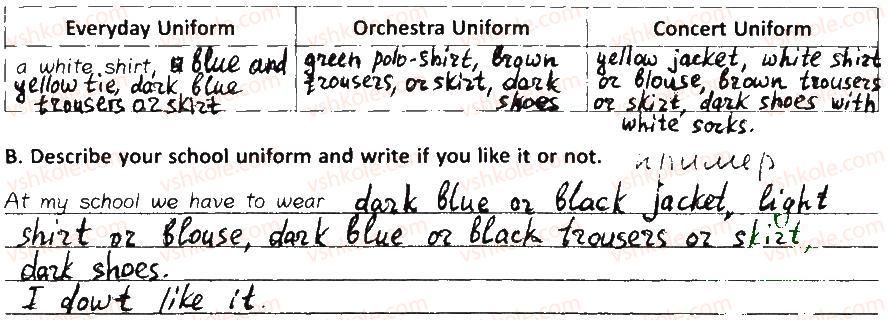 Everyday Uniform Orchestra Uniform Concert Uniform
a white shirt, a blue and green polo-shirt, brown yellow jacket, white shirt
yellow tie, dark blue trousers, or skirt, dark or blouse, brown trousers
trousers or skirt shoes or skirt, dark shoes with
white socks.
B. Describe your school uniform and write if you like it or not. пример
At my school we have to wear dark blue or black jacket, light
shirt or blouse, dark blue or black trousers or skirt,
dark shoes.
I dowt like it.
vshkole.com